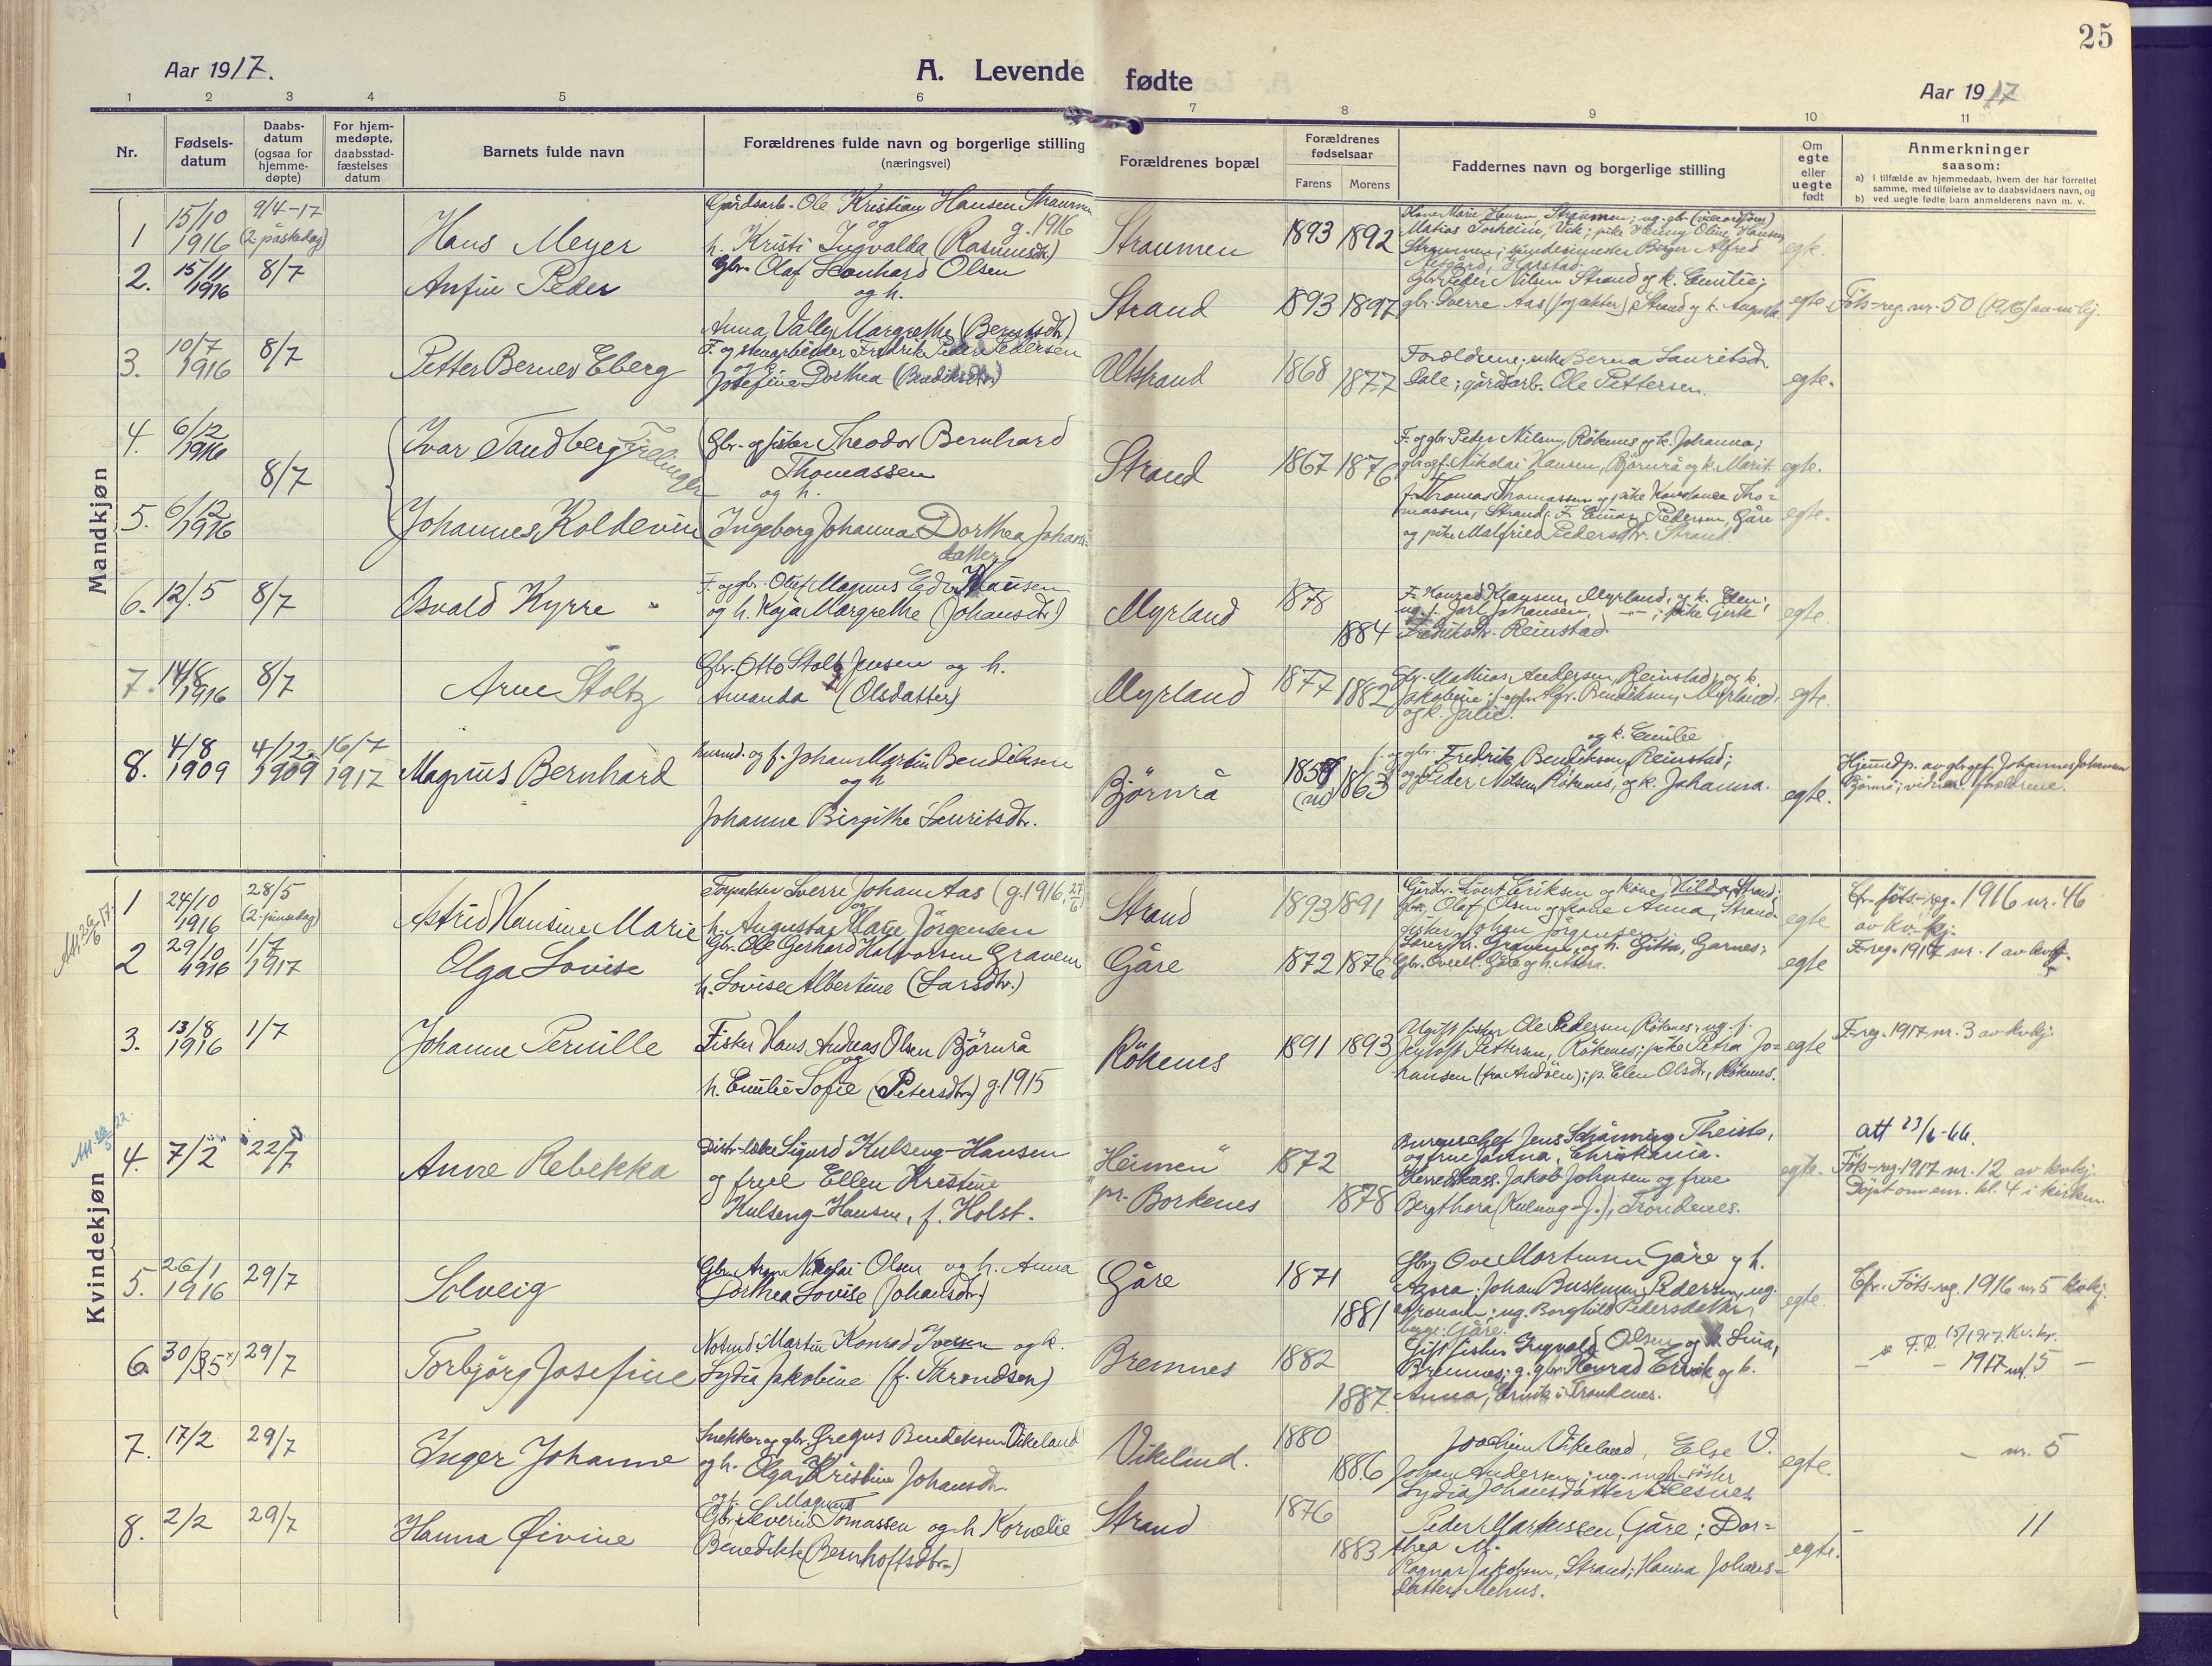 25
Aar 1917.
A. Levende fødte
Aar 1917
1 2 3 4 5 6 7 8 9 10 11
Nr.
Fødsels-
datum
Daabs-
datum
(ogsaa for
hjemme-
døpte)
For hjem-
medøpte,
daabsstad-
fæstelses
datum
Barnets fulde navn
Forældrenes fulde navn og borgerlige stilling
(næringsvei)
Forældrenes bopæl
Forældrenes
fødselsaar
Farens Morens
Faddernes navn og borgerlige stilling
Om
egte
eller
uegte
født
Anmerkninger
saasom:
a) i tilfælde av hjemmedaab, hvem der har forrettet
samme, med tilføielse av to daabsvidners navn, og
b) ved uegte fødte barn anmelderens navn m. v.
Mandkjøn
1 15/10 1916 9/4-17 (2. påskedag)
Hans Meyer
Gårdsarb. Ole Kristian Hansen Straumen
og g. 1916
h. Kristi Ingvalda (Rasmusdtr)
Straumen 1893 1892
egte.
2. 15/11 1916 8/7
Anfin Peder
Gbr. Olaf Leonhard Olsen
og h.
Anna Valley Margrethe (Berntsdtr)
Strand 1893 1897
Gbr. Peder Nilsen Strand og k. Emilie;
gbr. Sverre Aas (forpakter) Strand og k. Augusta.
egte
Føts-reg. nr. 50 (1916)
3. 10/7 1916 8/7
Petter Berner Eberg
F. og stenarbeider Fredrik Peder Pedersen
og k.
Josefine Dorthea (Bendiksdtr.)
Utstrand 1868 1877
Forældrene; enk. Berna Lauritsdtr.
Dale; gårdsarb. Ole Pettersen.
egte.
4. 6/12 1916 8/7
Ivar Tandberg
Tvillinger
Gbr. og fisker Theodor Bernhard
Thomassen
og h.
Strand 1867 1876
F. og gbr. Peder Nilsen, Rökenes og k. Johanna;
gbr. og f. Nikolai Hansen, Björnrå og k. Marit.
egte.
5. 6/12 1916
Johannes Koldevin
Ingeborg Johanna Dorthea Johans-
datter
f. Thomas Thomassen og pike Konstance Tho-
massen, Strand; F. Einar Pedersen, Gåre
og pike Malfried Pedersdtr. Strand.
egte.
6. 12/5 8/7
Osvald Kyrre
F. og gbr. Oluf Magnus Edv. Klausen
og h. Kaja Margrethe (Johansdtr)
Myrland 1878 1884
F. Konrad Klausen, Myrland, og k. Elen;
ug. f. Jarl Johansen, — " — ; pike Gjerte
Fredriksdtr. Reinstad.
egte.
7. 14/8 1916 8/7
Arne Stoltz
Gbr. Otto Stoltz Jensen og h.
Amanda (Olsdatter)
Myrland 1877 1882
Gbr. Mathias Andersen, Reinstad, og k.
Jakobine; Bendiksen, Myrland,
og k. Julie.
egte.
8. 4/8 1909 4/12 1909 16/7 1917
Magnus Bernhard
husmd. og f. Johan Martin Bendiksen
og h
Johanne Birgithe Lauritsdtr.
Björnrå 1863
og k. Emilie
f. og gbr. Fredrik Bendiksen, Reinstad;
Peder Nilsen Rökenes, og k. Johanna.
egte.
Hjemdp. av gbr. og f. Johannes Johansen
Björnrå; vidner: forældrene.
Kvindekjøn
1 24/10 1916 28/5 (2. pinsedag)
Astrid Hansine Marie
Forpakter Sverre Johan Aas (g. 1916, 27/6)
og
h. Augusta Marie Jörgensen
Strand 1893 1891
Gårdbr. Sivert Eriksen og kone Hilda, Strand;
Gbr. Olaf Olsen og kone Anna, Strand.
fisker Johan Jörgensen
egte
Cfr. föts-reg. 1916 nr. 46
av kv. kj.
2 29/10 1916 1/7 1917
Olga Lovise
Gbr. Ole Gerhard Halvorsen Graven
h. Lovise Albertine (Larsdtr.)
Gåre 1872 1876
egte
F-reg. 1917 nr. 1 av kvkj.
3. 13/8 1916 1/7
Johanne Pernille
Fisker Hans Andreas Olsen Björnrå
og
h. Emilie Sofie (Petersdtr) g. 1915
Rökenes 1891 1893
Ugift fisker Ole Pedersen, Rökenes; ug. f.
Pettersen, Rökenes; pike Petra Jo-
hansen (fra Andöen); p. Elen Olsdtr., Rökenes.
egte
F-reg. 1917 nr. 3 av kvkj.
4. 7/2 22/7
Anne Rebekka
Distr. læke Sigurd Kulseng-Hansen
og frue Ellen Kristine
Kulseng-Hansen, f. Holst.
"Heimen"
pr. Borkenes 1872 1878
Bureauchef Jens Schanning Theiste,
og frue Janna, Christiania.
Herredskass. Jakob Johnsen og frue
Bergthora (Kulseng-J.), Trondenes.
egte.
att 23/6-66.
Föts-reg. 1917 nr. 12 av kvkj.
Döpt om em. kl. 4 i kirken.
5. 26/1 1916 29/7
Solveig
Gbr. Aron Nikolai Olsen og h. Anna
Dorthea Lovise (Johansdtr)
Gåre 1871 1881
Gbr. Ove Martinsen Gåre og h.
Azora. Johan Buskman Pedersen, ug.
ug. Borghild Pedersdatter,
begge Gåre.
egte.
Cfr. Föts-reg. 1916 nr. 5 kvkj.
6. 29/7
Torbjörg Josefine
Notmd. Martin Konrad Iversen og k.
Lydia Jakobine (f. Throndsen)
Bremnes 1882 1887
Gift fisker Ingvald Olsen og k. Lina,
Bremnes; g. gbr. Konrad Ervik og k.
Anna, Ervik i Trondenes.
F.R. 15/1917. Kv. kj.
— — 1917 nr. 15 —
7. 17/2 29/7
Inger Johanne
Snekker og gbr. Gregus Bendiksen Vikeland
og h. Olga Kristine Johansdtr.
Vikeland. 1880 1886
Joachim Vikeland, Else V.
Johan Andersen; söster
Lydia Johansdatter
egte.
— nr. 5
8. 2/2 29/7
Hanna Øivine
Magnus
Gbr. Severin Tomassen og h. Kornelie
Benedikte (Bernhoftsdtr.)
Strand 1876 1883
Peder Martinssen, Gåre; Dor-
thea M.
Ragnar Jakobsen, Strand; Hanna Johans-
datter, Mehus.
egte.
— 11